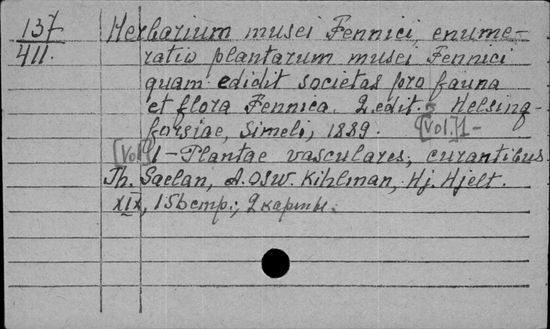 137
411.
Herbarium musei Fennici, enume-
ratio plantarum musei Fennici
quam edidit societas pro fauna
et flora Fennica. 2. edit. - Helsing-
forsiae, Simeli, 1889. [Vol.] 1 -
[Vol] 1 - Plantae vasculares, curantibus
Th. Saelan, A. Osw. Kihlman, Hj. Hjelt.
XIX, 156 стр.; 2 карты.